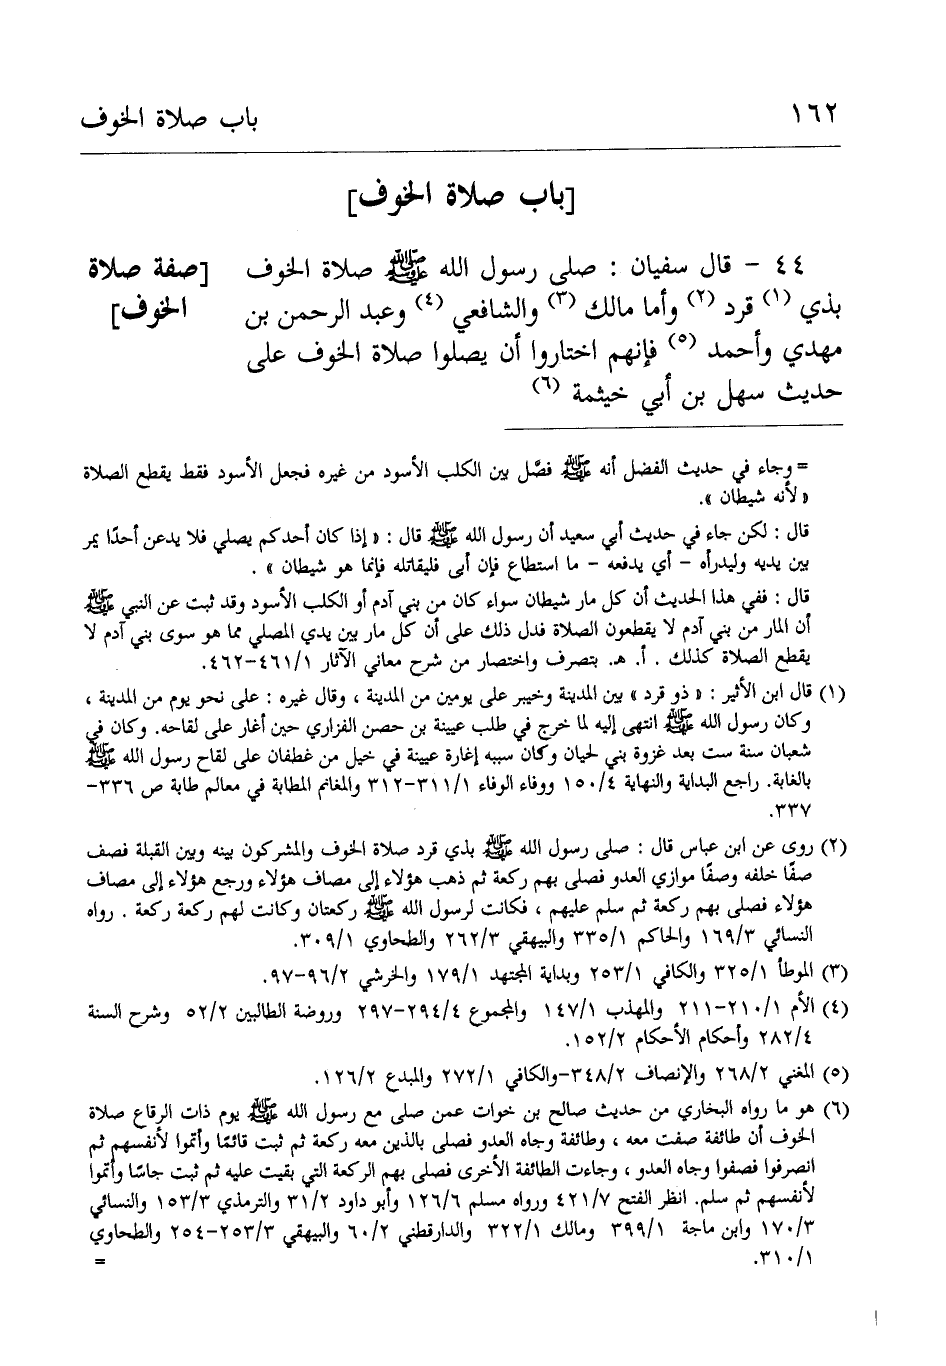 ١٦٢
باب صلاة الخوف
[باب صلاة الخوف]
[صفة صلاة
الخوف]
٤٤ - قال سفيان : صلى رسول الله ﷺ صلاة الخوف
بذي (١) قرد (٢) وأما مالك (٣) والشافعي (٤) وعبد الرحمن بن
مهدي وأحمد (٥) فإنهم اختاروا أن يصلوا صلاة الخوف على
حديث سهل بن أبي خيثمة (٦)
= وجاء في حديث الفضل أنه ﷺ فصَّل بين الكلب الأسود من غيره فجعل الأسود فقط يقطع الصلاة
« لأنه شيطان ».
قال : لكن جاء في حديث أبي سعيد أن رسول الله ﷺ قال : « إذا كان أحدكم يصلي فلا يدعن أحدًا يمر
بين يديه وليدرأه - أي يدفعه - ما استطاع فإن أبى فليقاتله فإنما هو شيطان » .
قال : ففي هذا الحديث أن كل مار شيطان سواء كان من بني آدم أو الكلب الأسود وقد ثبت عن النبي ﷺ
أن المار من بني آدم لا يقطعون الصلاة فدل ذلك على أن كل مار بين يدي المصلي مما هو سوى بني آدم لا
يقطع الصلاة كذلك . أ. هـ. بتصرف واختصار من شرح معاني الآثار ٤٦١/١-٤٦٢.
(١) قال ابن الأثير : « ذو قرد » بين المدينة وخيبر على يومين من المدينة ، وقال غيره : على نحو يوم من المدينة ،
وكان رسول الله ﷺ انتهى إليه لما خرج في طلب عيينة بن حصن الفزاري حين أغار على لقاحه. وكان في
شعبان سنة ست بعد غزوة بني لحيان وكان سببه إغارة عيينة في خيل من غطفان على لقاح رسول الله ﷺ
بالغابة. راجع البداية والنهاية ١٥٠/٤ ووفاء الوفاء ٣١١/١-٣١٢ والمغانم المطابة في معالم طابة ص ٣٣٦-
٣٣٧.
(٢) روى عن ابن عباس قال : صلى رسول الله ﷺ بذي قرد صلاة الخوف والمشركون بينه وبين القبلة فصف
صفًا خلفه وصفًا موازي العدو فصلى بهم ركعة ثم ذهب هؤلاء إلى مصاف هؤلاء ورجع هؤلاء إلى مصاف
هؤلاء فصلى بهم ركعة ثم سلم عليهم ، فكانت لرسول الله ﷺ ركعتان وكانت لهم ركعة ركعة . رواه
النسائي ١٦٩/٣ والحاكم ٣٣٥/١ والبيهقي ٢٦٢/٣ والطحاوي ٣٠٩/١.
(٣) الموطأ ٣٢٥/١ والكافي ٢٥٣/١ وبداية المجتهد ١٧٩/١ والخرشي ٩٦/٢-٩٧.
(٤) الأم ٢١٠/١-٢١١ والمهذب ١٤٧/١ والمجموع ٢٩٤/٤-٢٩٧ وروضة الطالبين ٥٢/٢ وشرح السنة
٢٨٢/٤ وأحكام الأحكام ١٥٢/٢.
(٥) المغني ٢٦٨/٢ والإنصاف ٣٤٨/٢-والكافي ٢٧٢/١ والمبدع ١٢٦/٢.
(٦) هو ما رواه البخاري من حديث صالح بن خوات عمن صلى مع رسول الله ﷺ يوم ذات الرقاع صلاة
الخوف أن طائفة صفت معه ، وطائفة وجاه العدو فصلى بالذين معه ركعة ثم ثبت قائمًا وأتموا لأنفسهم ثم
انصرفوا فصفوا وجاه العدو ، وجاءت الطائفة الأخرى فصلى بهم الركعة التي بقيت عليه ثم ثبت جاسًا وأتموا
لأنفسهم ثم سلم. انظر الفتح ٤٢١/٧ ورواه مسلم ١٢٦/٦ وأبو داود ٣١/٢ والترمذي ١٥٣/٣ والنسائي
١٧٠/٣ وابن ماجة ٣٩٩/١ ومالك ٣٢٢/١ والدارقطني ٦٠/٢ والبيهقي ٢٥٣/٣-٢٥٤ والطحاوي
٣١٠/١.
=